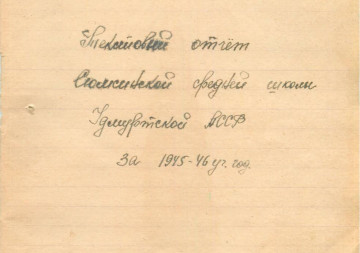 Текстовый отчёт
Сюмсинской средней школы
Удмуртской АССР
За 1945-46 уч. год.